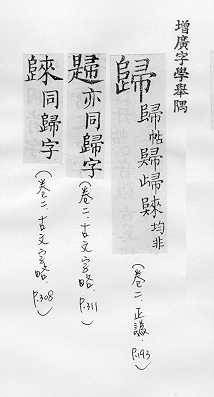 增廣字學舉隅
歸 均非（卷二、正譌、P.193）
亦同歸字（卷二、古文字略、P.311）
同歸字（卷二、古文字略、P.308）